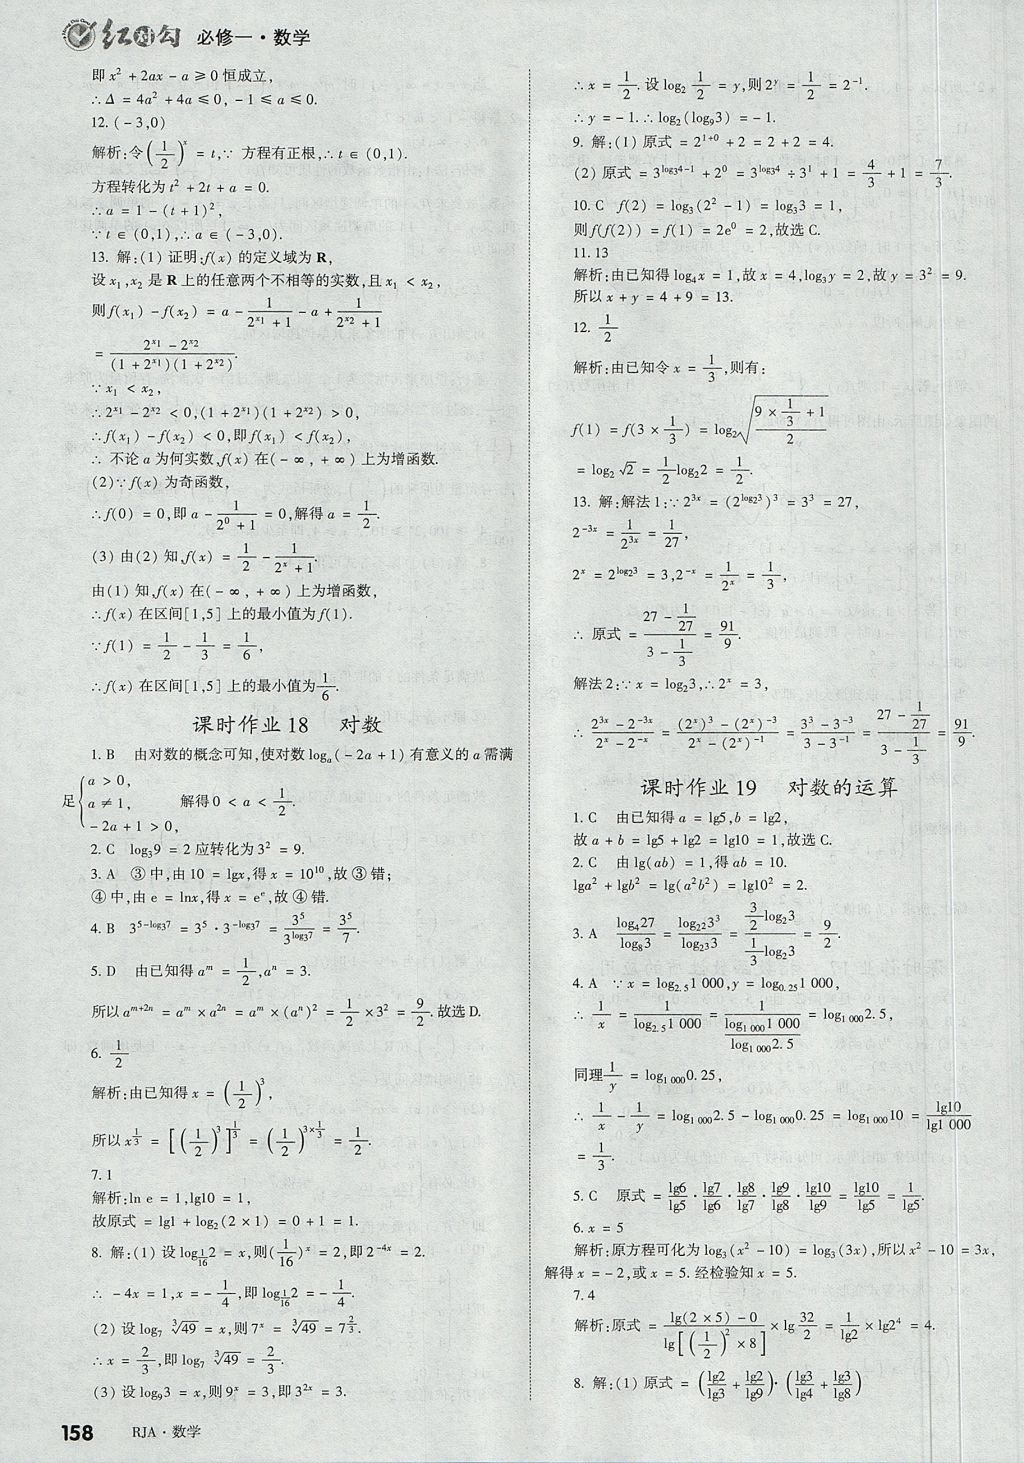 红对勾 必修一·数学
即 x² + 2ax - a ≥ 0 恒成立,
∴Δ = 4a² + 4a ≤ 0, -1 ≤ a ≤ 0.
12. (-3,0)
解析:令(1/2)^x = t,∵ 方程有正根,∴t ∈ (0,1).
方程转化为 t² + 2t + a = 0.
∴a = 1 - (t + 1)²,
∵t ∈ (0,1),∴a ∈ (-3,0).
13. 解:(1) 证明:f(x) 的定义域为 R,
设 x₁,x₂ 是 R 上的任意两个不相等的实数,且 x₁ < x₂,
则 f(x₁) - f(x₂) = a - 1/(2^x₁ + 1) - a + 1/(2^x₂ + 1)
= (2^x₁ - 2^x₂)/((1 + 2^x₁)(1 + 2^x₂)).
∵x₁ < x₂,
∴2^x₁ - 2^x₂ < 0,(1 + 2^x₁)(1 + 2^x₂) > 0,
∴f(x₁) - f(x₂) < 0,即 f(x₁) < f(x₂),
∴ 不论 a 为何实数,f(x) 在(-∞, +∞) 上为增函数.
(2)∵f(x) 为奇函数,
∴f(0) = 0,即 a - 1/(2⁰ + 1) = 0,解得 a = 1/2.
(3) 由(2) 知,f(x) = 1/2 - 1/(2^x + 1).
由(1) 知,f(x) 在(-∞, +∞) 上为增函数,
∴f(x) 在区间[1,5] 上的最小值为 f(1).
∵f(1) = 1/2 - 1/3 = 1/6,
∴f(x) 在区间[1,5] 上的最小值为 1/6.
课时作业 18 对数
1. B 由对数的概念可知,使对数 logₐ(-2a + 1) 有意义的 a 需满
足{a > 0,
a ≠ 1, 解得 0 < a < 1/2.
-2a + 1 > 0,
2. C log₃9 = 2 应转化为 3² = 9.
3. A ③ 中,由 10 = lgx,得 x = 10¹⁰,故 ③ 错;
④ 中,由 e = lnx,得 x = e^e,故 ④ 错.
4. B 3^(5-log₃7) = 3⁵ · 3^(-log₃7) = 3⁵/3^(log₃7) = 3⁵/7.
5. D 由已知得 a^m = 1/2,a^n = 3.
所以 a^(m+2n) = a^m × a^(2n) = a^m × (a^n)² = 1/2 × 3² = 9/2. 故选 D.
6. 1/2
解析:由已知得 x = (1/2)³,
所以 x^(1/3) = [(1/2)³]^(1/3) = (1/2)^(3×1/3) = 1/2.
7. 1
解析:ln e = 1,lg10 = 1,
故原式 = lg1 + log₂(2 × 1) = 0 + 1 = 1.
8. 解:(1) 设 log_(1/16) 2 = x,则(1/16)^x = 2,即 2^(-4x) = 2.
∴ -4x = 1,x = -1/4,即 log_(1/16) 2 = -1/4.
(2) 设 log₇ ∛49 = x,则 7^x = ∛49 = 7^(2/3).
∴x = 2/3,即 log₇ ∛49 = 2/3.
(3) 设 log₉3 = x,则 9^x = 3,即 3^(2x) = 3.
∴x = 1/2. 设 log₂ 1/2 = y,则 2^y = 1/2 = 2⁻¹.
∴y = -1. ∴log₂(log₉3) = -1.
9. 解:(1) 原式 = 2^(1+0) + 2 = 2 + 2 = 4.
(2) 原式 = 3^(log₃4-1) + 2⁰ = 3^(log₃4) ÷ 3¹ + 1 = 4/3 + 1 = 7/3.
10. C f(2) = log₃(2² - 1) = log₃3 = 1,
则 f(f(2)) = f(1) = 2e⁰ = 2,故选 C.
11. 13
解析:由已知得 log₄x = 1,故 x = 4,log₃y = 2,故 y = 3² = 9.
所以 x + y = 4 + 9 = 13.
12. 1/2
解析:由已知令 x = 1/3,则有:
f(1) = f(3 × 1/3) = log₂√((9 × 1/3 + 1)/2)
= log₂√2 = 1/2 log₂2 = 1/2.
13. 解:解法 1:∵2^(3x) = (2^(log₂3))³ = 3³ = 27,
2^(-3x) = 1/2^(3x) = 1/27,
2^x = 2^(log₂3) = 3,2^(-x) = 1/2^x = 1/3,
∴ 原式 = (27 - 1/27)/(3 - 1/3) = 91/9.
解法 2:∵x = log₂3,∴2^x = 3,
∴ (2^(3x) - 2^(-3x))/(2^x - 2^(-x)) = ((2^x)³ - (2^x)⁻³)/(2^x - (2^x)⁻¹) = (3³ - 3⁻³)/(3 - 3⁻¹) = (27 - 1/27)/(3 - 1/3) = 91/9.
课时作业 19 对数的运算
1. C 由已知得 a = lg5,b = lg2,
故 a + b = lg5 + lg2 = lg10 = 1,故选 C.
2. C 由 lg(ab) = 1,得 ab = 10.
lga² + lgb² = lg(a²b²) = lg10² = 2.
3. A log₄27/log₈3 = log₂²3³/log₂³3 = (3/2 log₂3)/(1/3 log₂3) = 9/2.
4. A ∵x = log₂.₅1 000,y = log₀.₂₅1 000,
∴ 1/x = 1/(log₂.₅1 000) = 1/(log₁ ₀₀₀1 000/log₁ ₀₀₀2.5) = log₁ ₀₀₀2.5,
同理 1/y = log₁ ₀₀₀0.25,
∴ 1/x - 1/y = log₁ ₀₀₀2.5 - log₁ ₀₀₀0.25 = log₁ ₀₀₀10 = lg10/lg1 000
= 1/3.
5. C 原式 = lg6/lg5 · lg7/lg6 · lg8/lg7 · lg9/lg8 · lg10/lg9 = lg10/lg5 = 1/lg5.
6. x = 5
解析:原方程可化为 log₃(x² - 10) = log₃(3x),所以 x² - 10 = 3x,
解得 x = -2,或 x = 5. 经检验知 x = 5.
7. 4
解析:原式 = (lg(2 × 5) - 0)/lg[(1/2)² × 8] × lg 32/2 = 1/lg2 × lg2⁴ = 4.
8. 解:(1) 原式 = (lg2/lg3 + lg2/lg9) · (lg3/lg4 + lg3/lg8)
158 RJA·数学